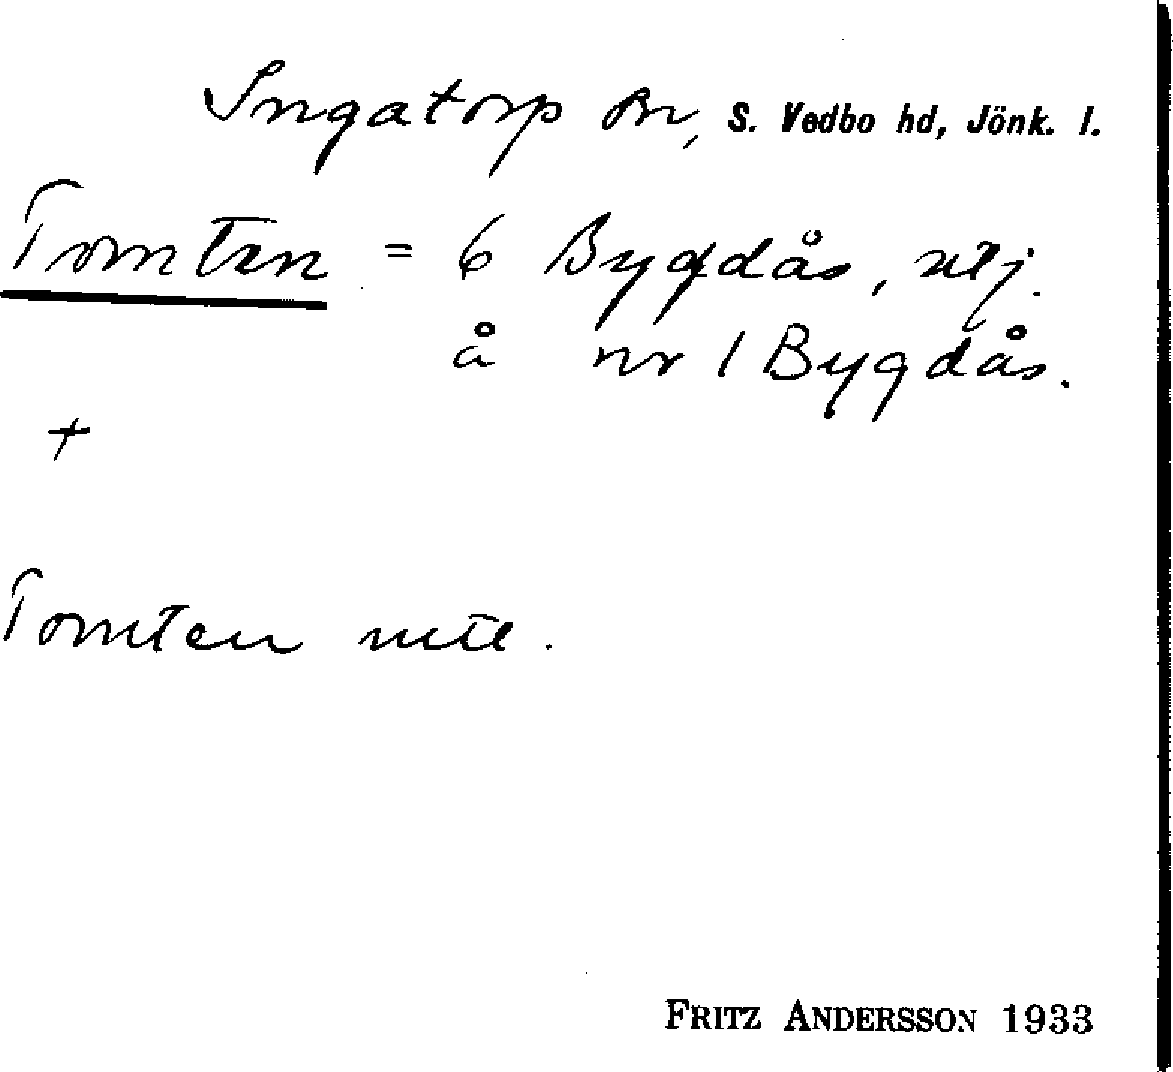 Ingatorp sn, S. Vedbo hd, Jönk. l.
Tomten = 6 Bygdås, utj.
å nr 1 Bygdås.
+
Tomten mtl.
FRITZ ANDERSSON 1933